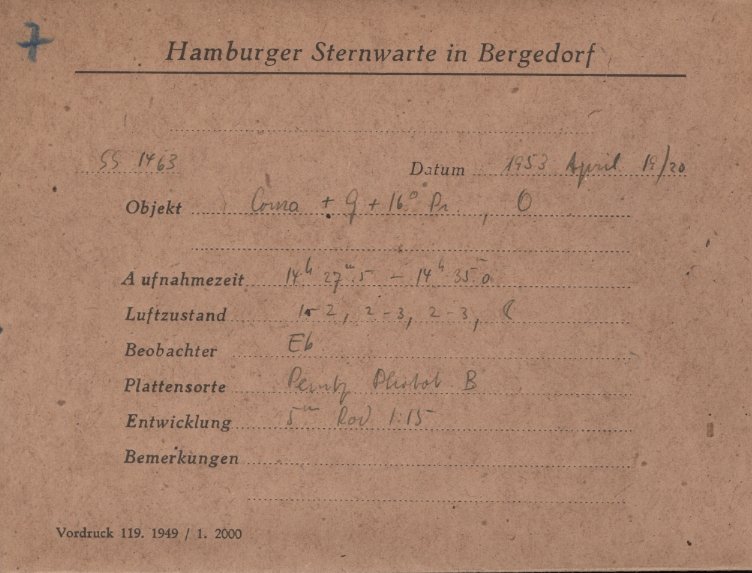 7
Hamburger Sternwarte in Bergedorf
SS 1463 Datum 1953 April 19/20
Objekt Coma + G + 16° Pr, O
Aufnahmezeit 14h 27m.5 – 14h 35.0
Luftzustand 1-2, 2-3, 2-3, ☾
Beobachter Eb
Plattensorte Perutz Phototh B
Entwicklung 5m Rod 1:15
Bemerkungen
Vordruck 119. 1949 / 1. 2000